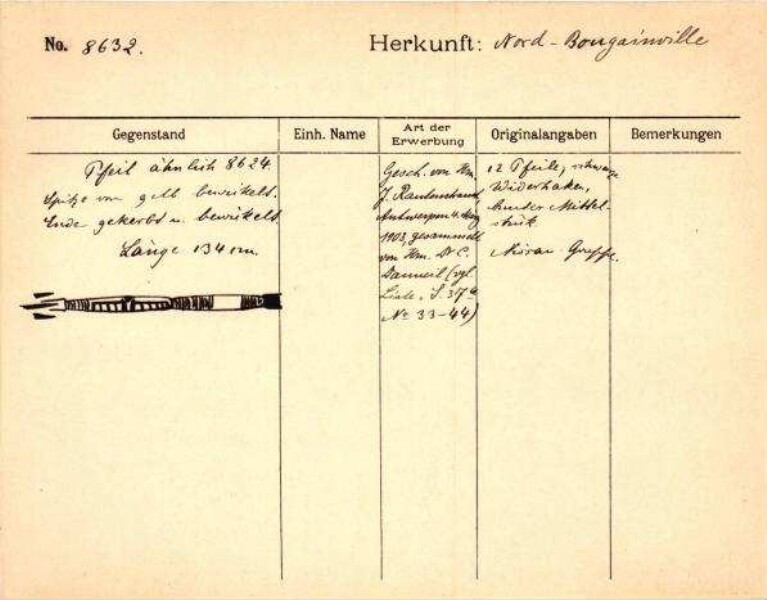 No. 8632.
Herkunft: Nord-Bougainville
Gegenstand
Einh. Name
Art der Erwerbung
Originalangaben
Bemerkungen
Pfeil ähnlich 8624.
Spitze von gelb bewickelt.
Ende gekerbt u. bewickelt
Länge 134 cm.
Gesch. von Hrn.
J. Rautenstrauch,
Antwerpen 4. May
1903, gesammelt
von Hrn. Dr C.
Danneil (vgl.
Liste, S. 37
No 33-44)
12 Pfeile, schwarze
Widerhaken,
bunter Mittel-
stück
Gruppe.